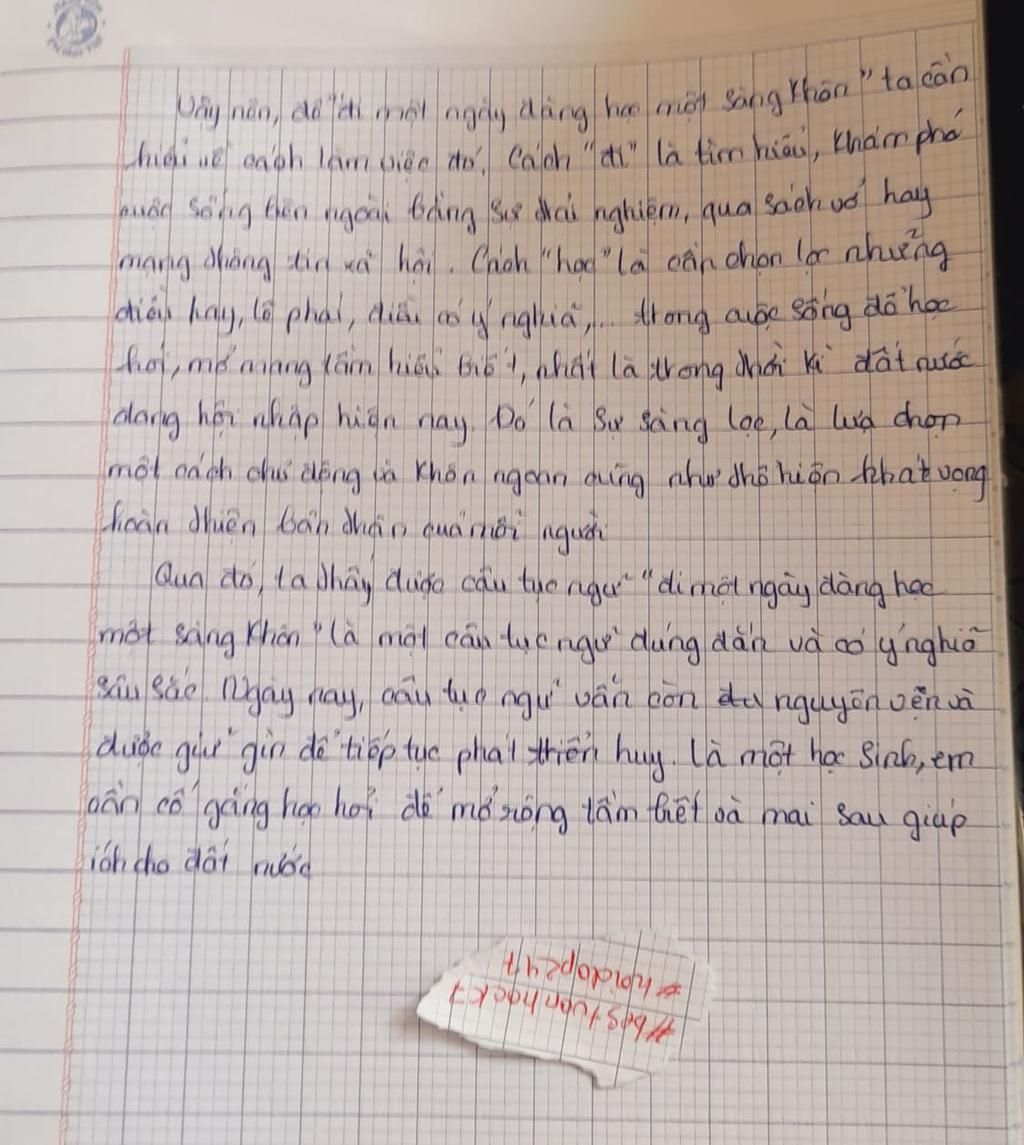 Vậy nên, để "đi một ngày đàng học một sàng khôn" ta cần
hiểu về cách làm việc đó. Cách "đi" là tìm hiểu, khám phá
cuộc sống bên ngoài bằng sự trải nghiệm, qua sách vở hay
mạng thông tin xã hội. Cách "học" là cần chọn lọc những
điều hay, lẽ phải, điều có ý nghĩa,... trong cuộc sống để học
hỏi, mở mang tầm hiểu biết, nhất là trong thời kì đất nước
đang hội nhập hiện nay. Đó là sự sàng lọc, là lựa chọn
một cách chủ động và khôn ngoan cũng như thể hiện khát vọng
hoàn thiện bản thân của mỗi người
Qua đó, ta thấy được câu tục ngữ "đi một ngày đàng học
một sàng khôn" là một câu tục ngữ đúng đắn và có ý nghĩa
sâu sắc. Ngày nay, câu tục ngữ vẫn còn nguyên vẹn và
được giữ gìn để tiếp tục phát triển huy. Là một học sinh, em
cần cố gắng học hỏi để mở rộng tầm biết và mai sau giúp
ích cho đất nước
#bestvanhock7
#hoidap247